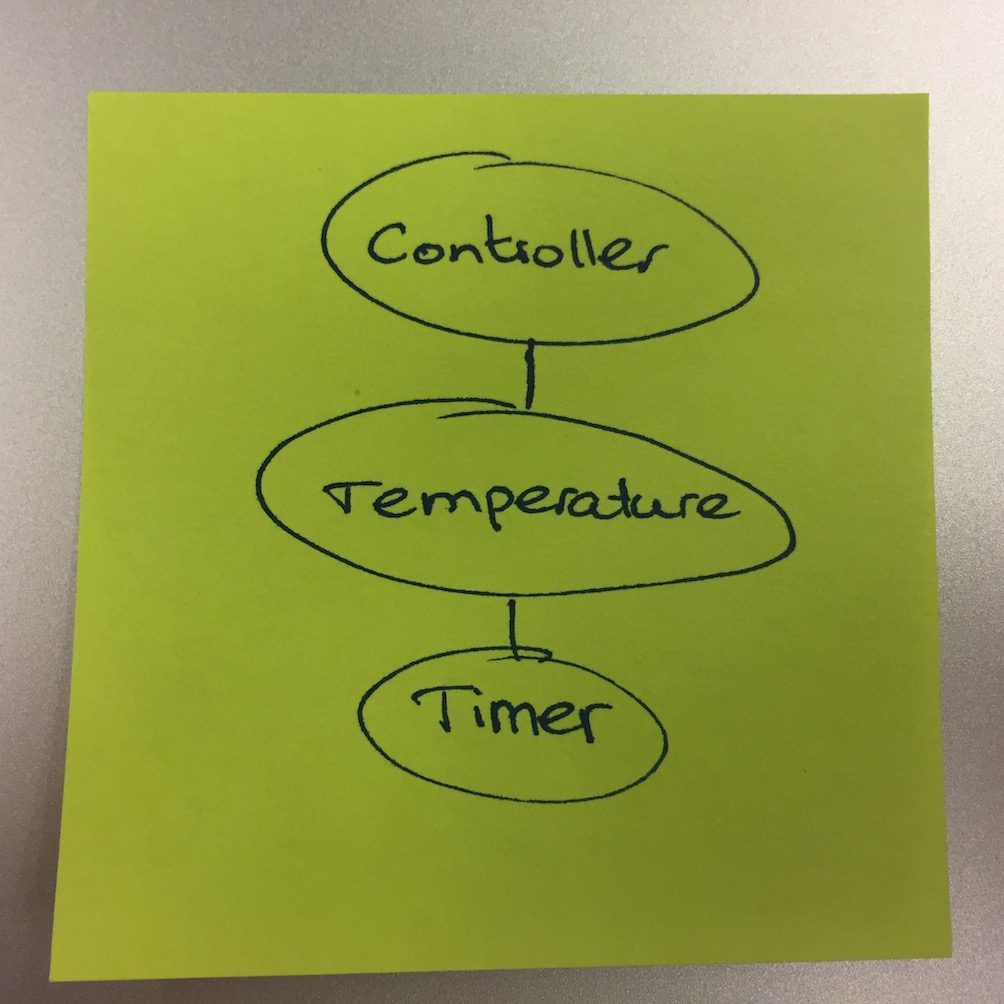 Controller
Temperature
Timer